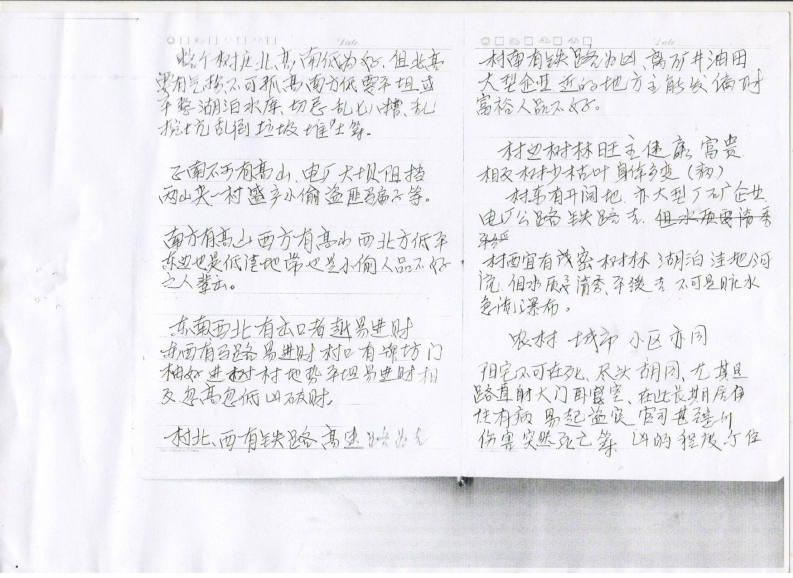 整个村庄北高南低为好,但北高
要有气势不可孤高南方低要平坦或
平整湖泊水库,切忌乱七八糟、乱
挖坑乱倒垃圾堆土等。
正南不可有高山、电厂大坝阻挡
两山夹一村盛产小偷盗匪骗子等。
南方有高山西方有高山西北方低平
东边也是低洼地带也是小偷人品不好
之人辈出。
东南西北有出口者越易进财
东西有公路易进财村口有牌坊门
楼好进村村地势平坦易进财相
反忽高忽低凶破财。
村北、西有铁路高速路为吉
村南有铁路为凶,离矿井油田
大型企业近的地方主能发偏财
富裕人品不好。
村边树林旺主健康富贵
相反树少枯叶身体多变(病)
村东有开阔地,亦大型厂矿企业
电厂公路铁路吉,但水质要清秀
平缓
村西宜有茂密树林湖泊洼地河
流,但水质要清秀平缓吉不可是脏水
急流瀑布。
农村 城市 小区亦同
阳宅不可在死、尽头胡同,尤其是
路直射大门或卧室,在此长期居住
性有病易起盗灾官司甚至
伤害突然死亡等,凶的程度